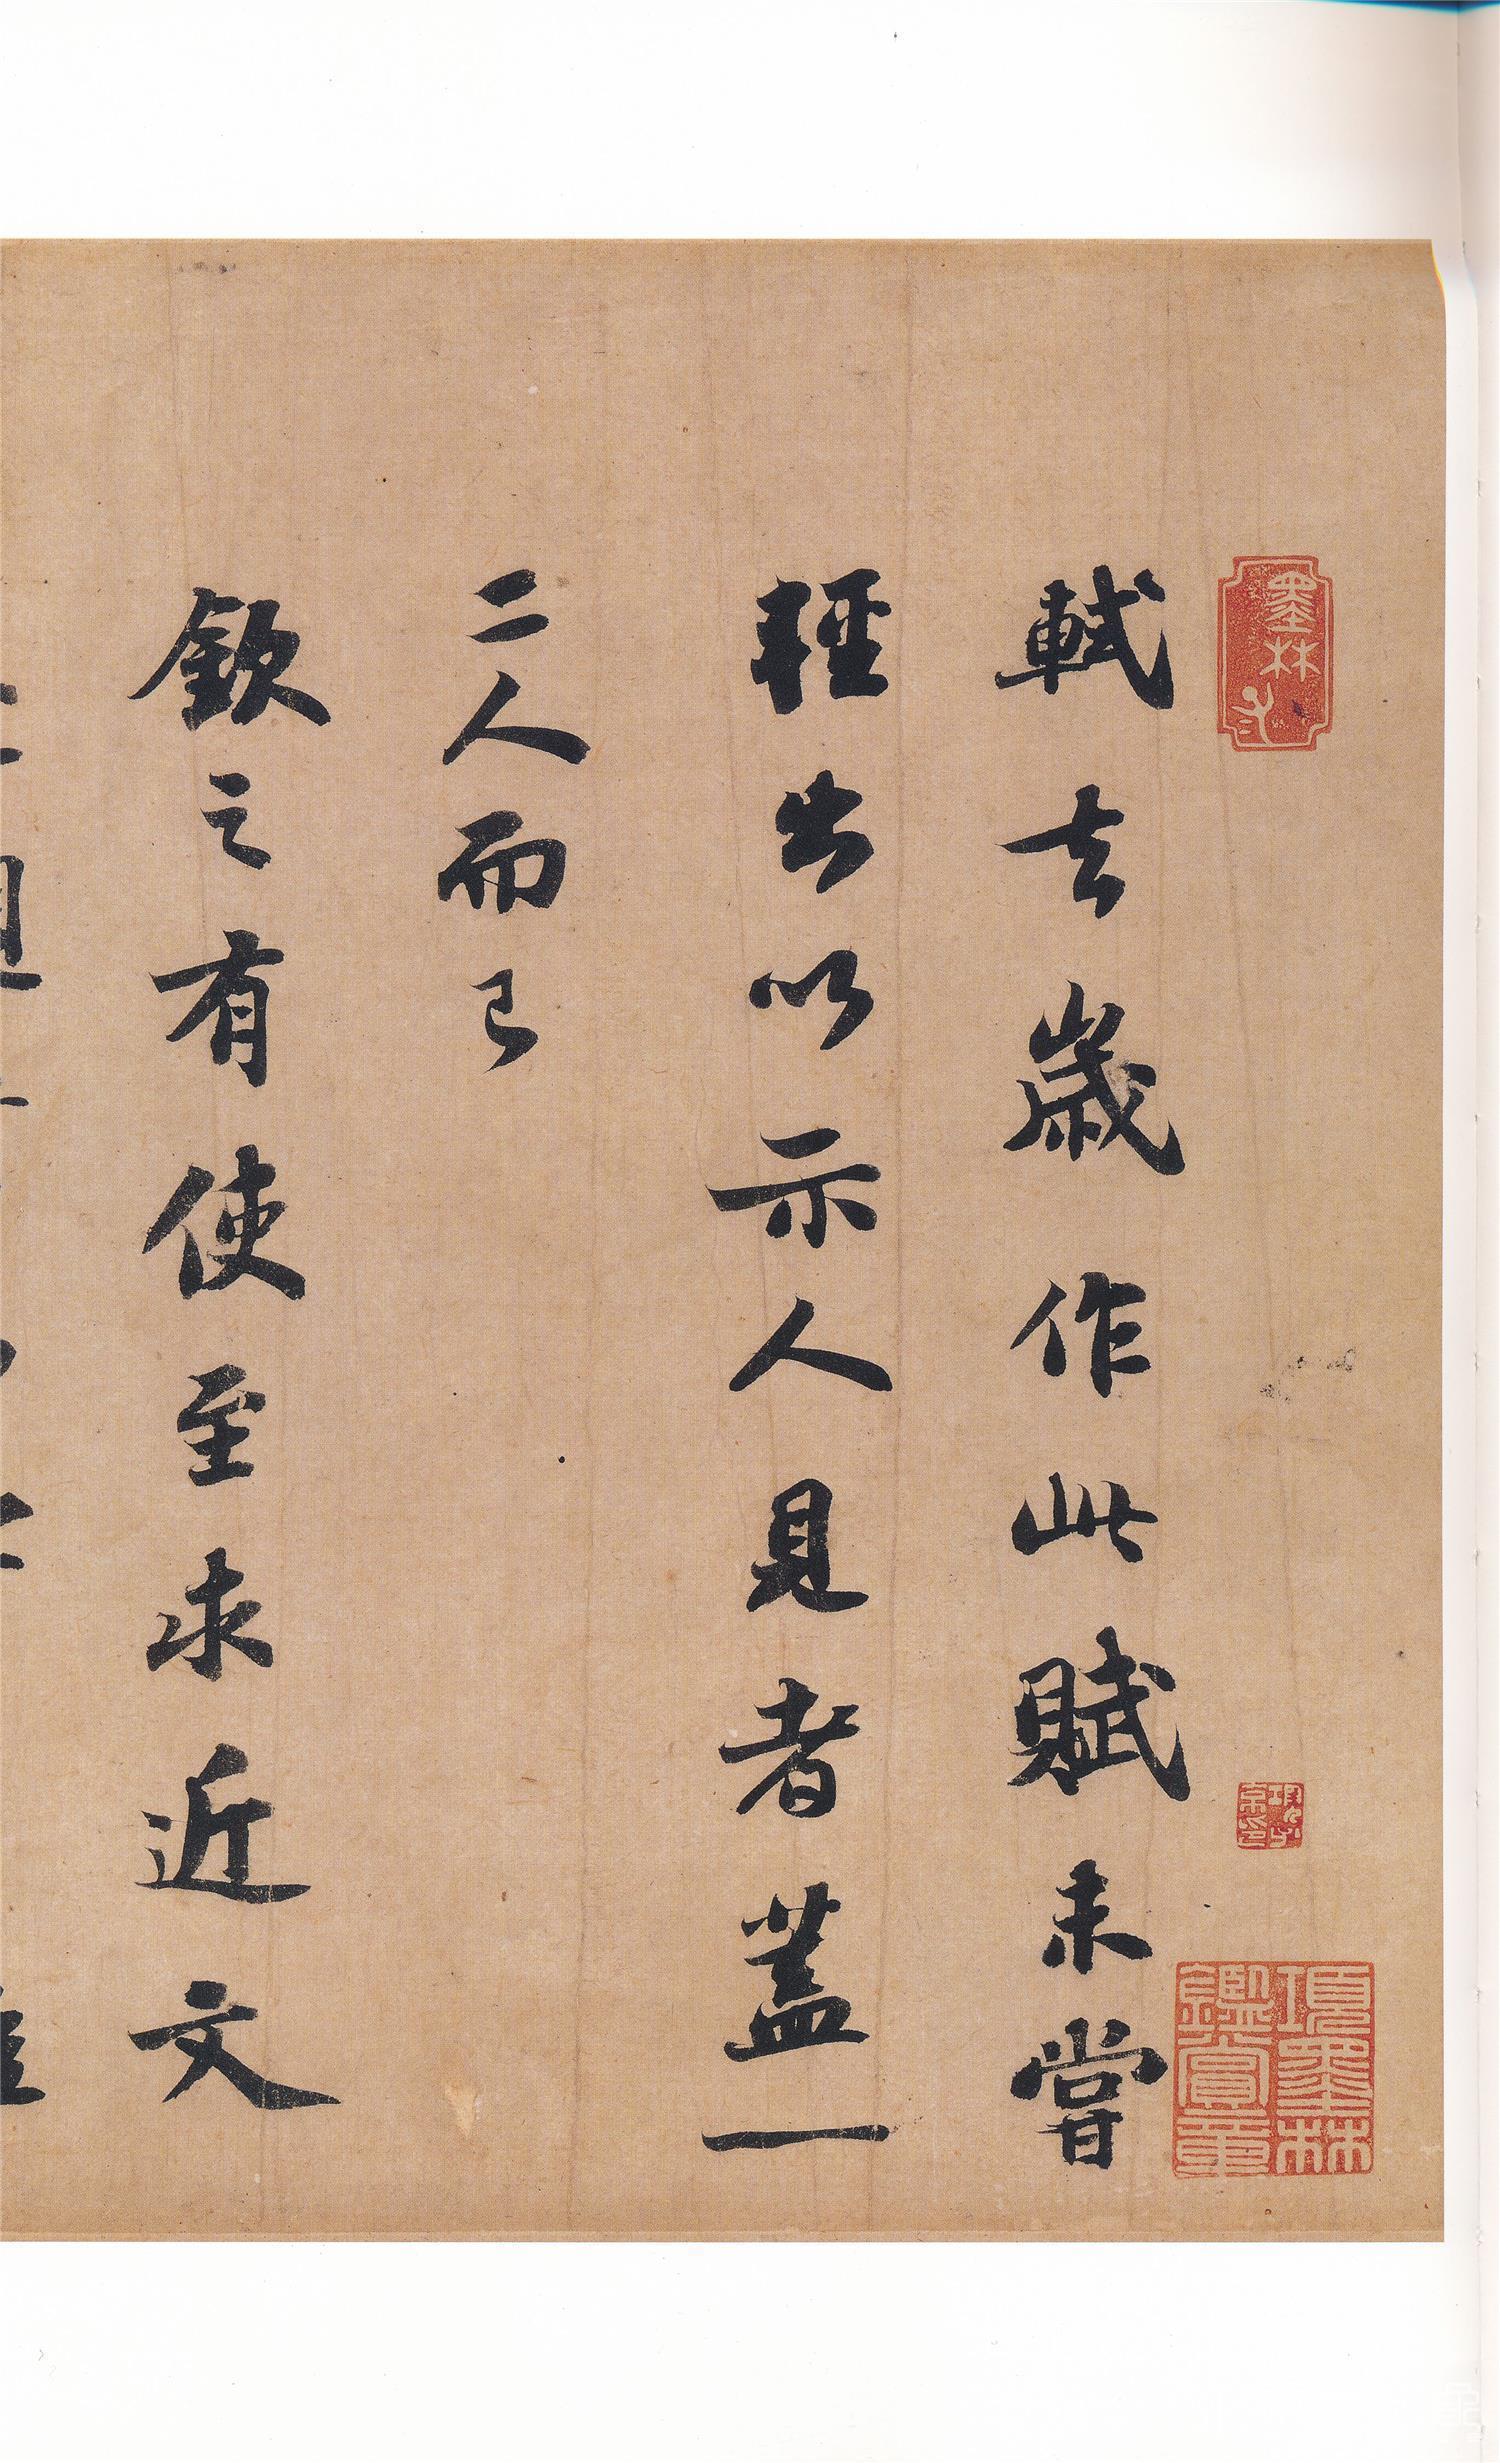 軾去歲作此賦未嘗
輕出以示人見者蓋一
二人而已
欽之有使至求近文
墨林
項墨林
鑑賞章